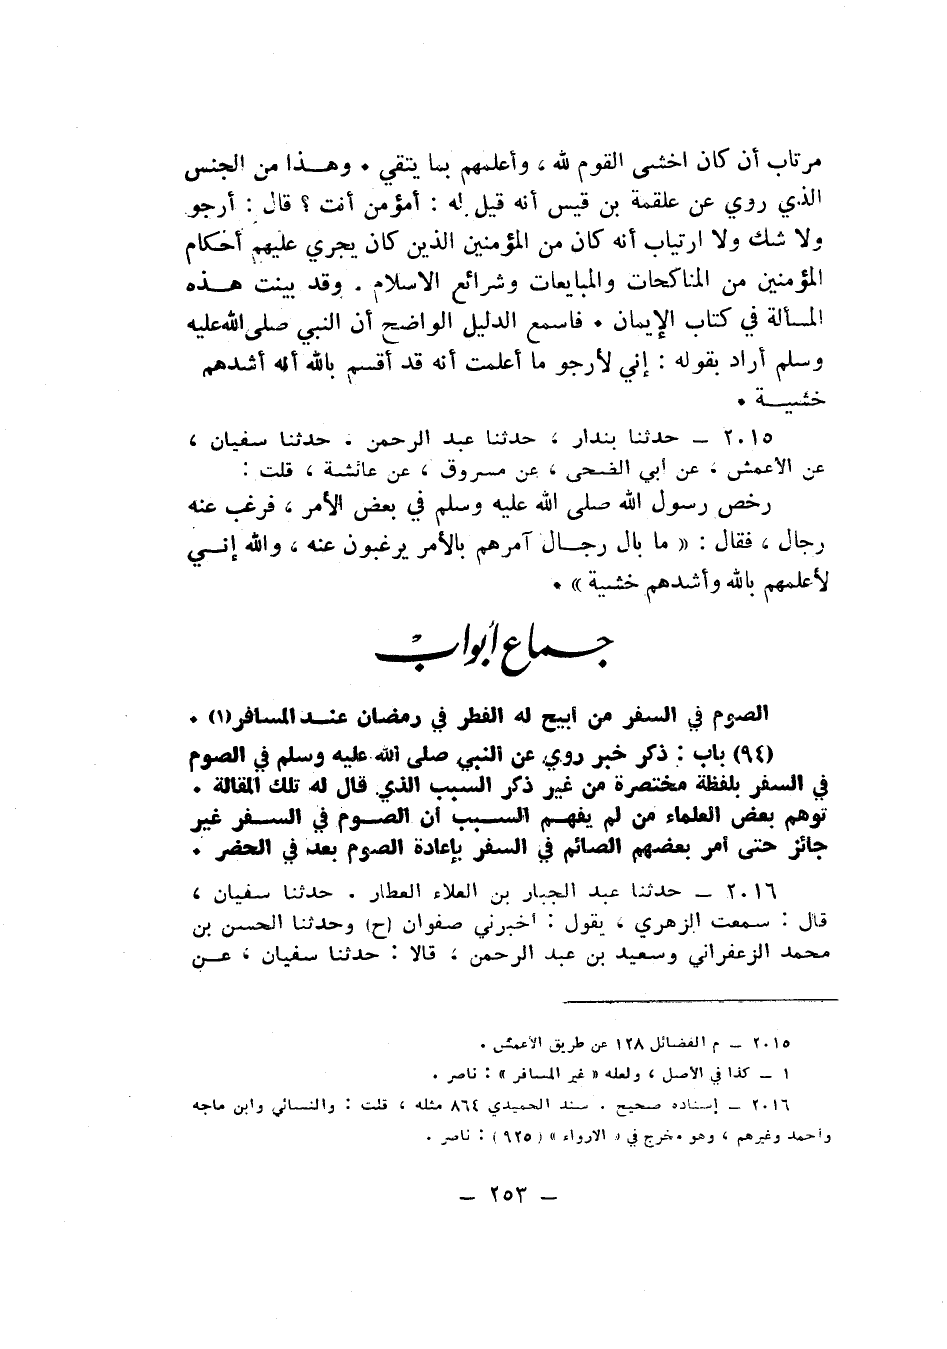 مرتاب أن كان اخشى القوم لله ، وأعلمهم بما يتقي . وهذا من الجنس
الذي روي عن علقمة بن قيس أنه قيل له : أمؤمن أنت ؟ قال : أرجو
ولا شك ولا ارتياب أنه كان من المؤمنين الذين كان يجري عليهم أحكام
المؤمنين من المناكحات والمبايعات وشرائع الاسلام . وقد بينت هذه
المسألة في كتاب الإيمان . فاسمع الدليل الواضح أن النبي صلى الله عليه
وسلم أراد بقوله : إني لأرجو ما أعلمت أنه قد أقسم بالله أنه أشدهم
خشية .
٢٠١٥ – حدثنا بندار ، حدثنا عبد الرحمن . حدثنا سفيان ،
عن الأعمش ، عن أبي الضحى ، عن مسروق ، عن عائشة ، قلت :
رخص رسول الله صلى الله عليه وسلم في بعض الأمر ، فرغب عنه
رجال ، فقال : « ما بال رجال آمرهم بالأمر يرغبون عنه ، والله إني
لأعلمهم بالله وأشدهم خشية » .
جماع أبواب
الصوم في السفر من أبيح له الفطر في رمضان عند المسافر(١) .
(٩٤) باب : ذكر خبر روي عن النبي صلى الله عليه وسلم في الصوم
في السفر بلفظة مختصرة من غير ذكر السبب الذي قال له تلك المقالة .
توهم بعض العلماء من لم يفهم السبب أن الصوم في السفر غير
جائز حتى أمر بعضهم الصائم في السفر بإعادة الصوم بعد في الحضر .
٢٠١٦ – حدثنا عبد الجبار بن العلاء العطار . حدثنا سفيان ،
قال : سمعت الزهري ، يقول : أخبرني صفوان (ح) وحدثنا الحسن بن
محمد الزعفراني وسعيد بن عبد الرحمن ، قالا : حدثنا سفيان ، عن
٢٠١٥ – م الفضائل ١٢٨ عن طريق الأعمش .
١ – كذا في الأصل ، ولعله « غير المسافر » : ناصر .
٢٠١٦ – إسناده صحيح . سند الحميدي ٨٦٤ مثله ، قلت : والنسائي وابن ماجه
وأحمد وغيرهم ، وهو مخرج في « الارواء » (٩٢٥) : ناصر .
– ٢٥٣ –